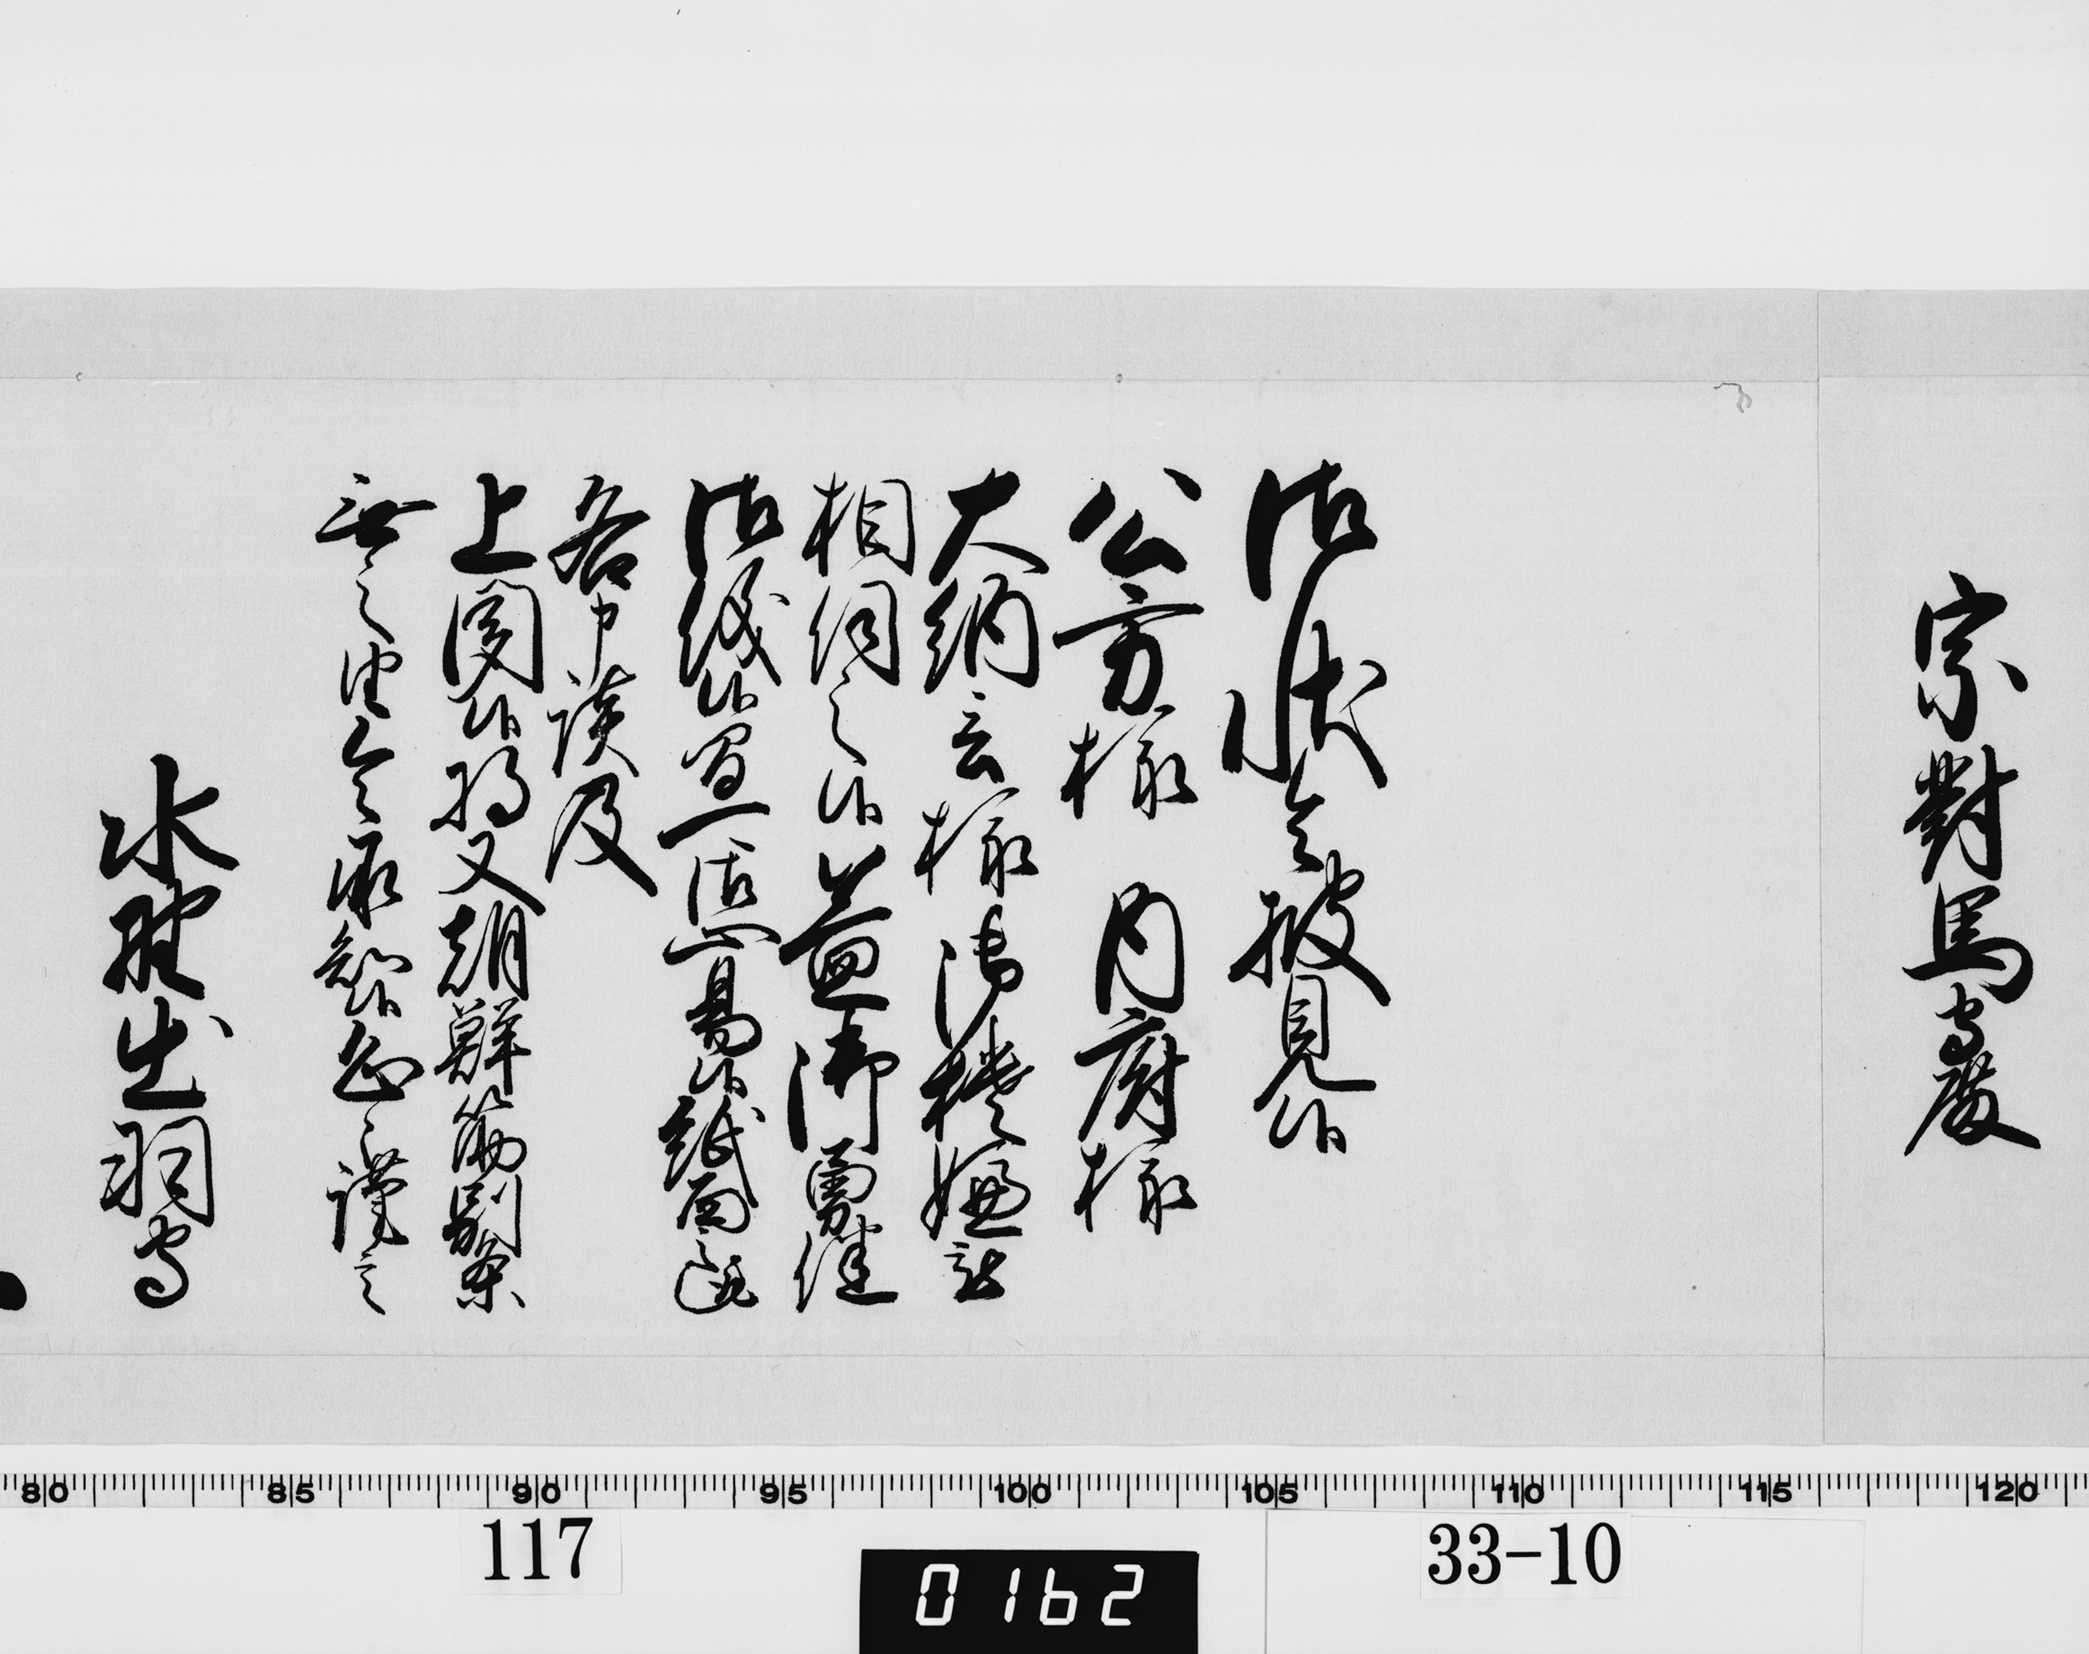 宗對馬守殿
御状令披見候
公方様　内府様
大納言様御機嫌
相伺之候益御勇健
御儀候間可御心易候紙面之趣
各申談及
上聞候将又朝鮮筋別条
無之由令承知候恐々謹言
水野出羽守
80 85 90 95 100 105 110 115 120
117
33-10
0162